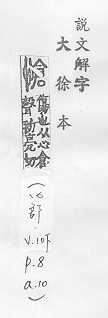 說文解字
大徐本
傷也从心倉
聲初亮切
(心部, V.10下
P.8
a.10)